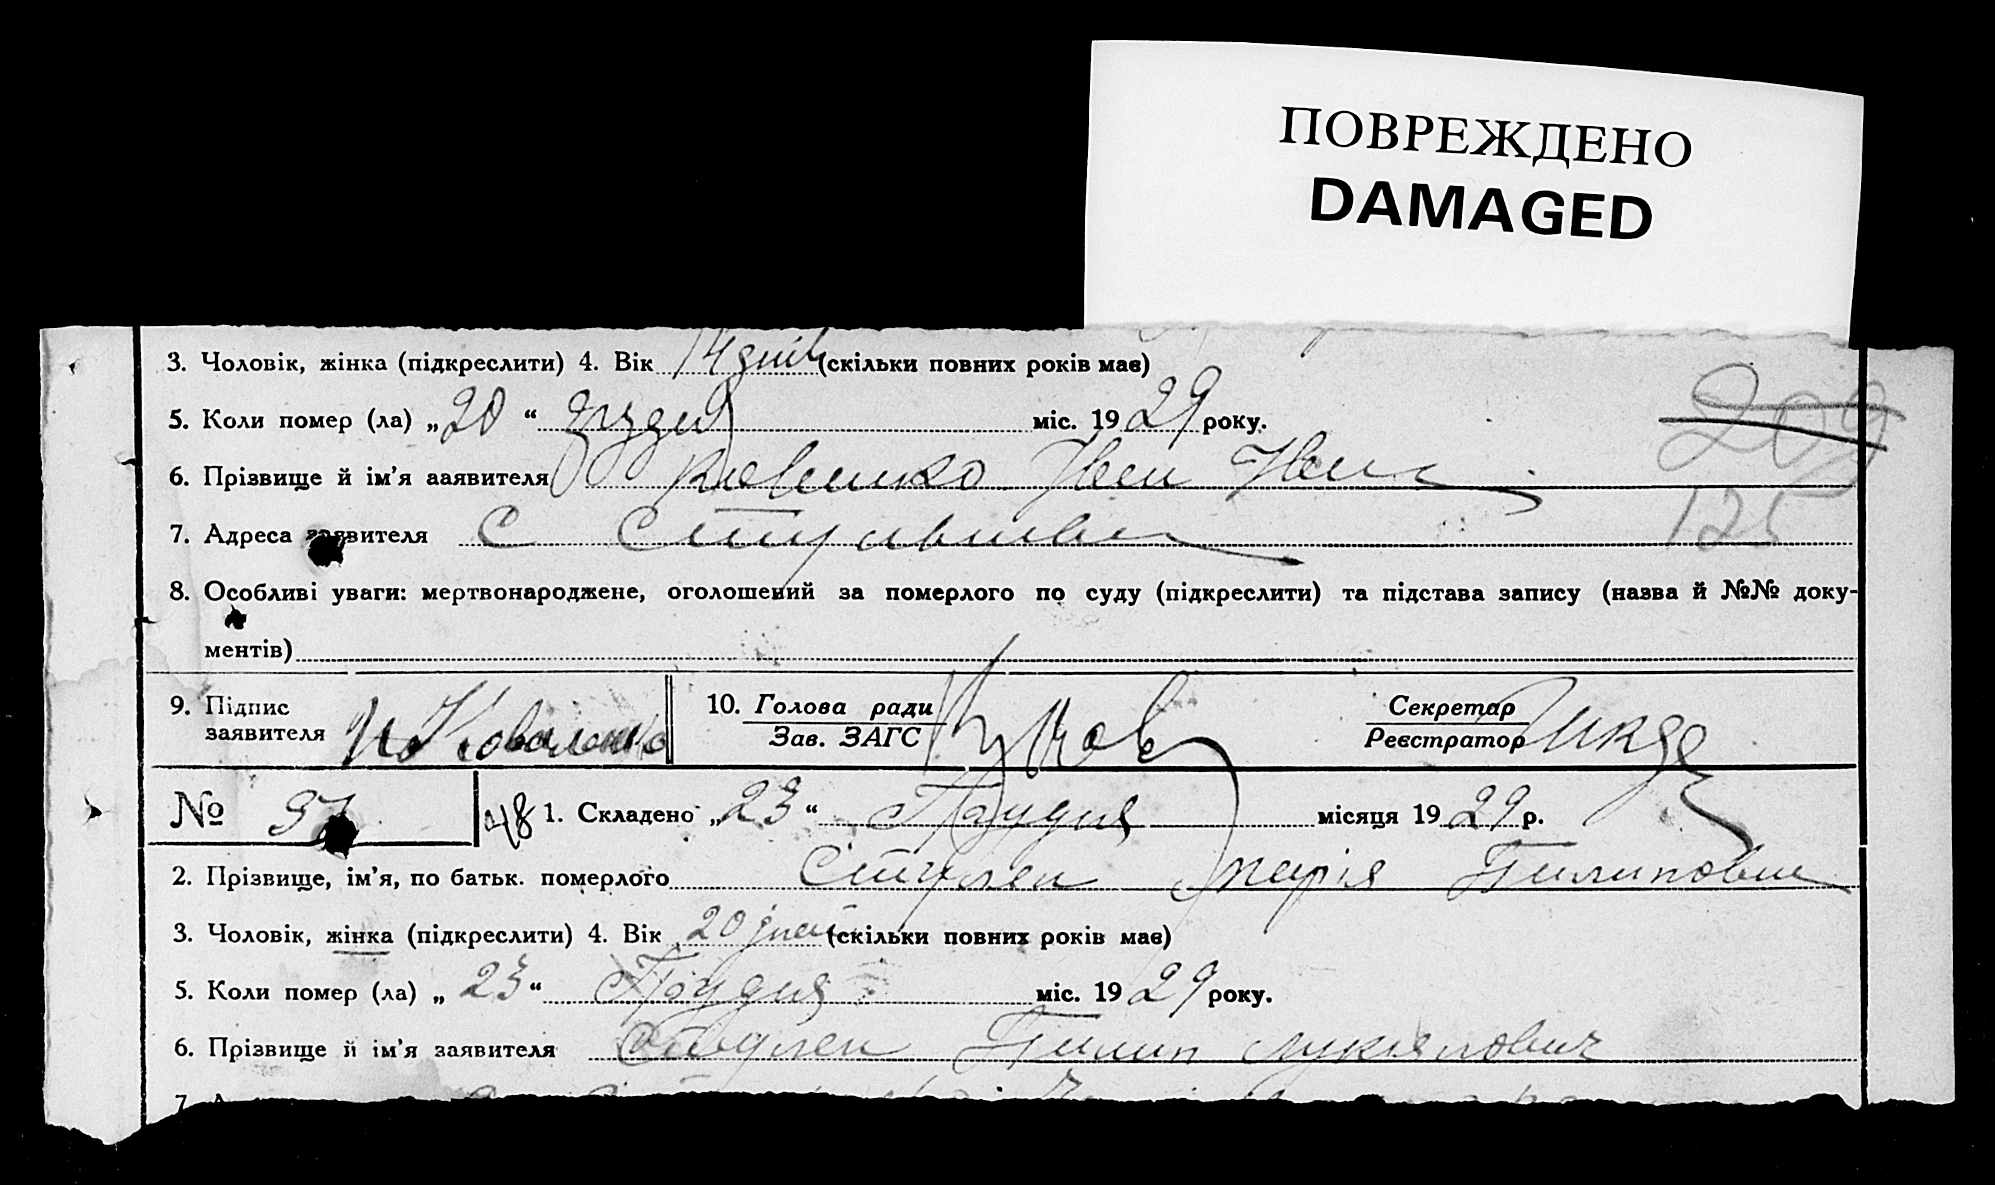 ПОВРЕЖДЕНО
DAMAGED
3. Чоловік, жінка (підкреслити) 4. Вік 14 днів (скільки повних років має)
5. Коли помер (ла) „20“ грудня міс. 1929 року.
209
6. Прізвище й ім'я заявителя Іван
125
7. Адреса заявителя с
8. Особливі уваги: мертвонароджене, оголошений за померлого по суду (підкреслити) та підстава запису (назва й №№ доку-
ментів)
9. Підпис заявителя Коваленко 10. Голова ради Секретар
Зав. ЗАГС Реєстратор
№ 37 48 1. Складено „23“ Грудня місяця 1929 р.
2. Прізвище, ім'я, по батьк. померлого Марія Пилиповна
3. Чоловік, жінка (підкреслити) 4. Вік 20 (скільки повних років має)
5. Коли помер (ла) „23“ Грудня міс. 1929 року.
6. Прізвище й ім'я заявителя Пилип Лукянович
7.